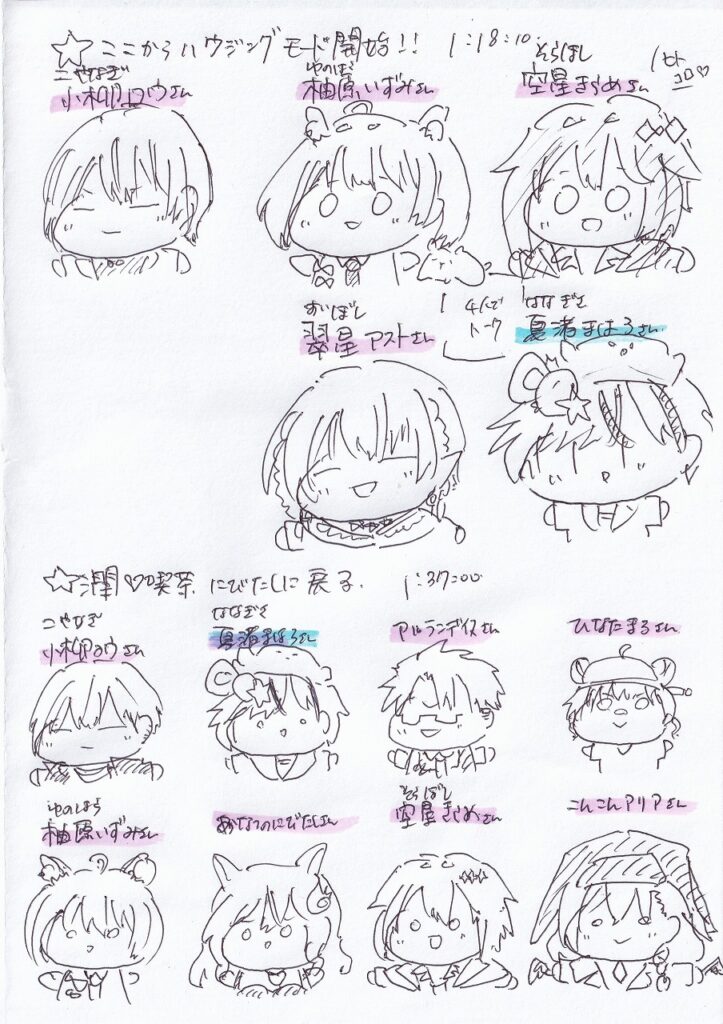 ☆ここからハウジングモード開始!! 1:18:10.
こやなぎ
小柳ロウさん
ゆのはら
柚原いずみさん
そらほし
空星きらめさん
すいぼし
翠星アストさん
4人で
トーク
はなぎさ
夏渚まほろさん
☆潤♡喫茶 にびたしに戻る. 1:37:00
こやなぎ
小柳ロウさん
はなぎさ
夏渚まほろさん
アルランディスさん
ひなたまるさん
ゆのはら
柚原いずみさん
そらほし
空星きらめさん
こんこんアリアさん